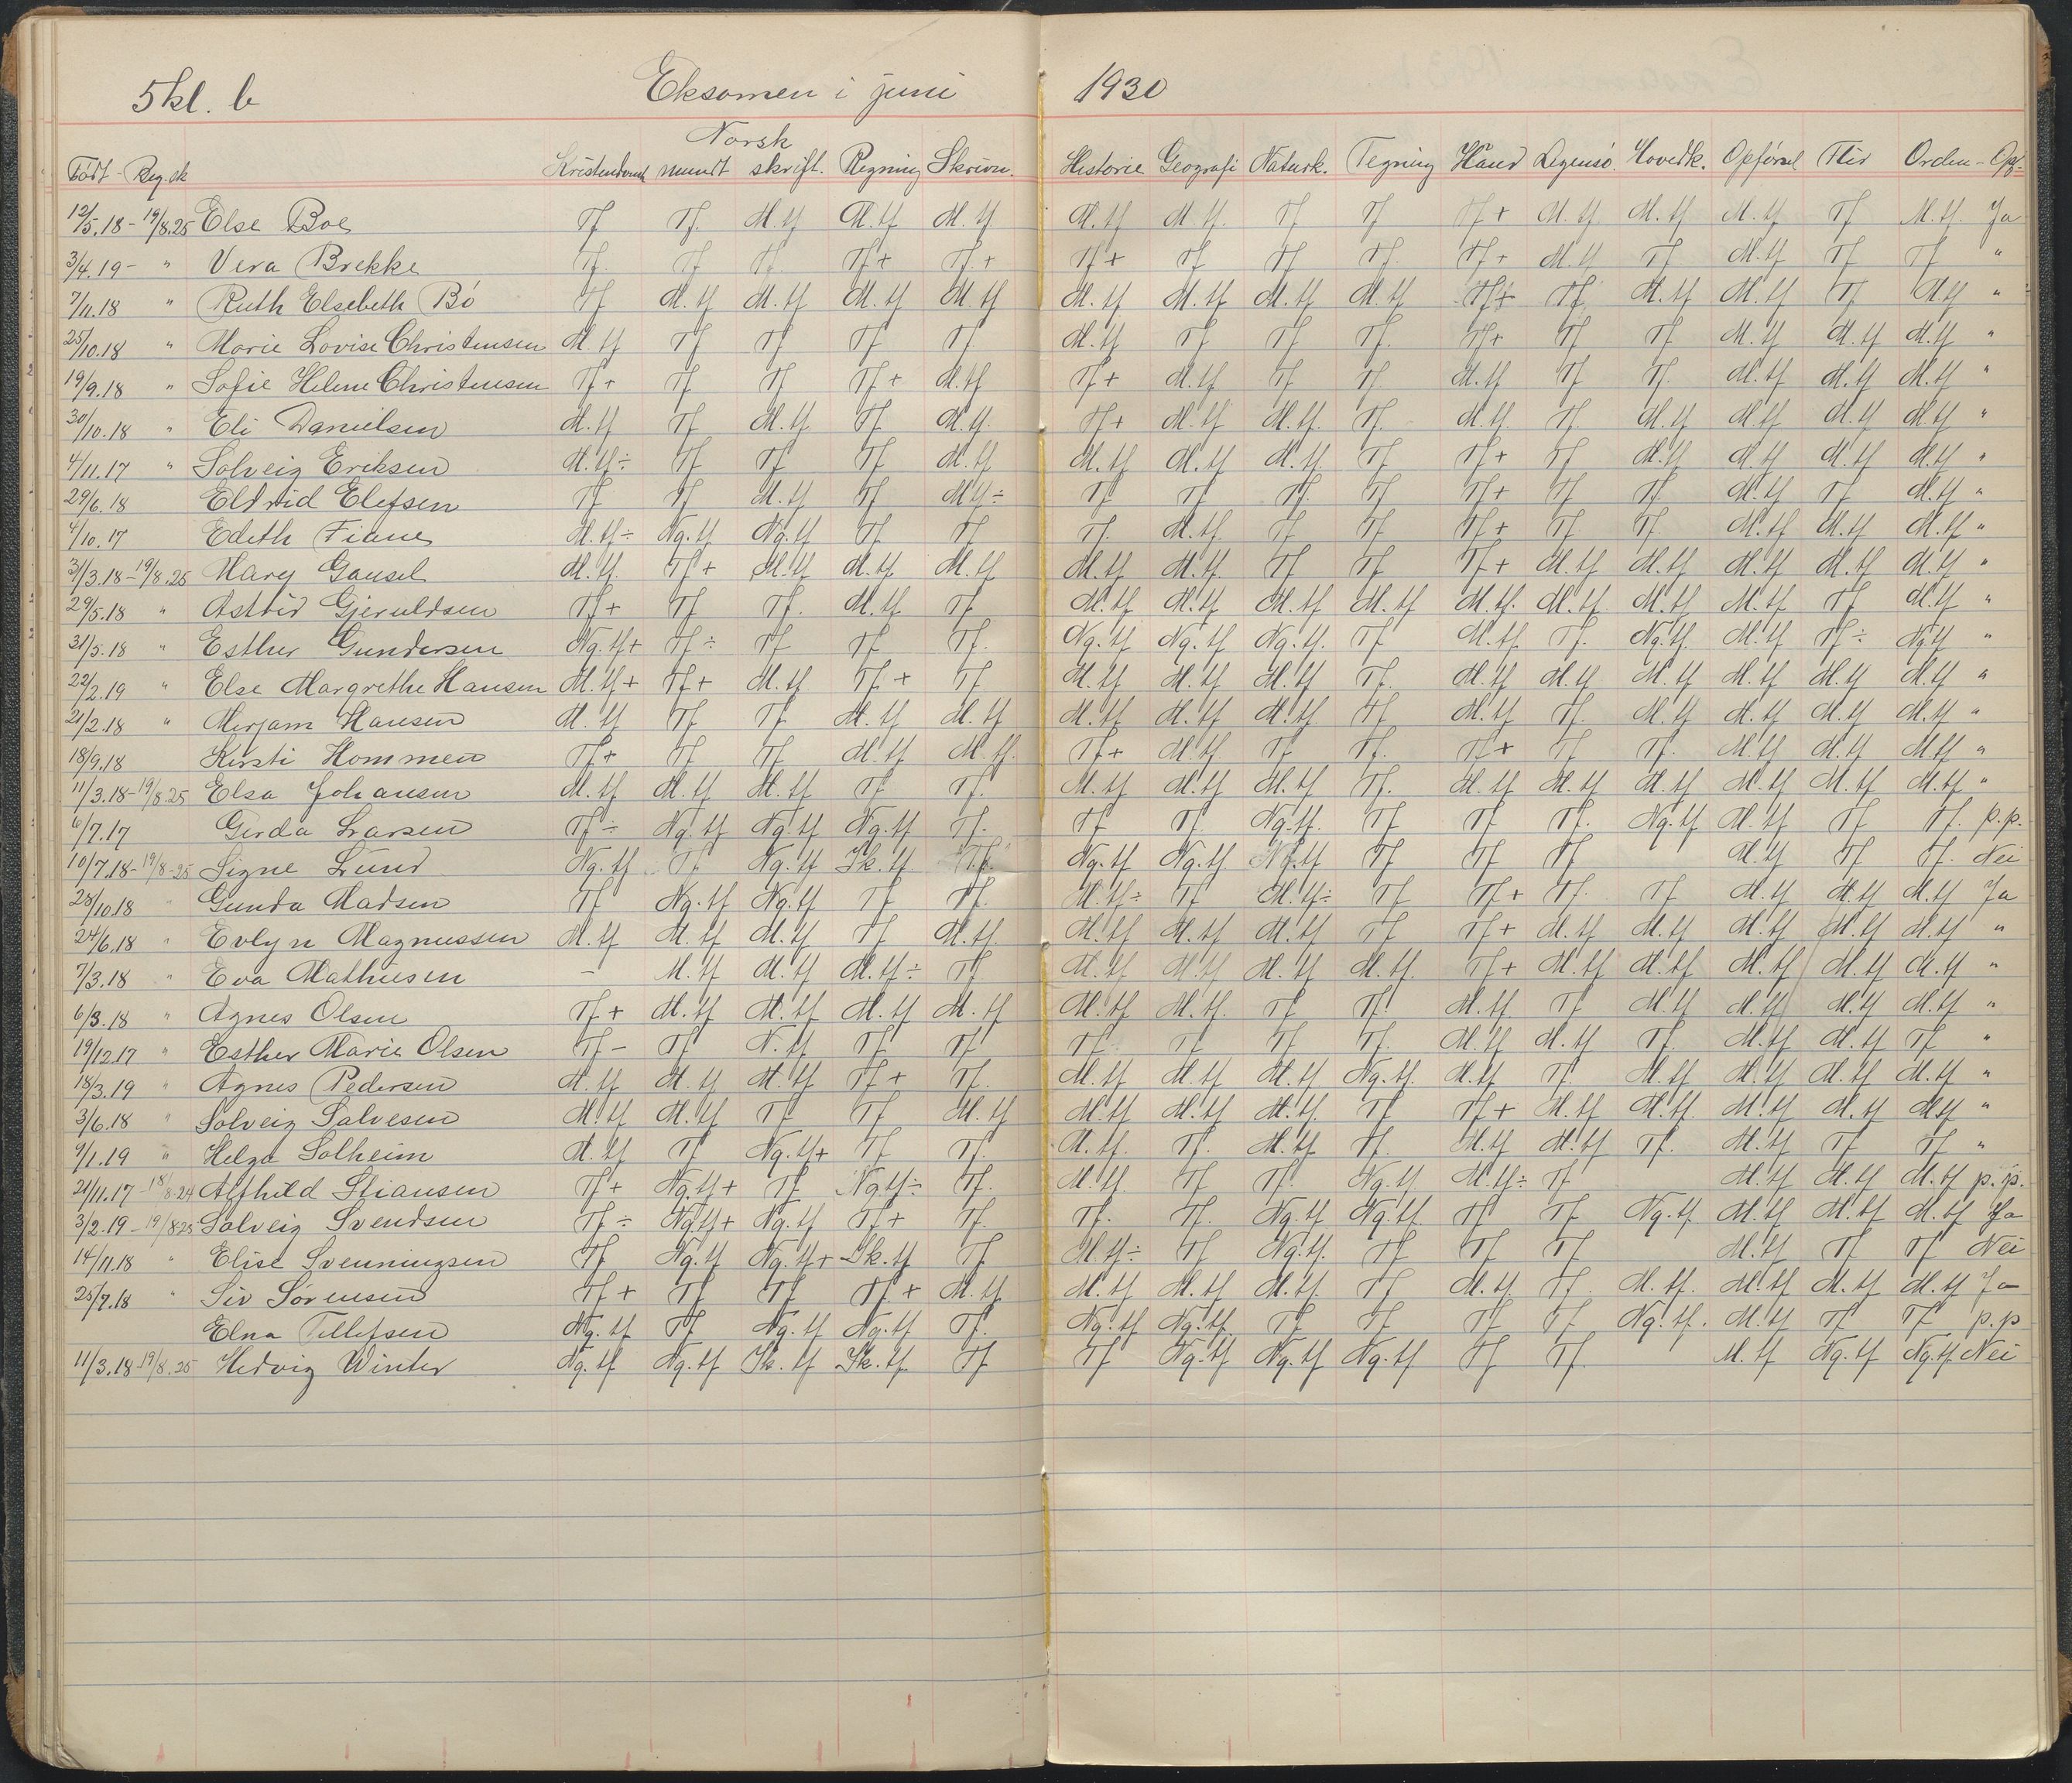 5 kl. b Eksamen i juni 1930
Norsk
Født - Beg. sk Kristendomsk mundt skrift. Regning Skrivn. Historie Geografi Naturk. Tegning Hånd Legemsø. Hovedk. Opførsel Flid Orden - Opf.
12/5.18 - 19/8.25 Else Boe Tf Tf. M.tf M.tf M.tf M.tf M.tf. Tf Tf Tf+ M.tf M.tf M.tf Tf M.tf. Ja
3/4.19 - " Vera Brekke Tf. Tf Tf. Tf+ Tf.+ Tf+ Tf Tf Tf. Tf+ M.tf Tf M.tf Tf Tf "
7/11.18 " Ruth Elsebeth Bø Tf M.tf M.tf M.tf M.tf M.tf. M.tf M.tf M.tf Tf+ Tf. M.tf M.tf Tf Mtf "
25/10.18 " Marie Lovise Christensen M.tf Tf Tf Tf Tf M.tf Tf Tf Tf. Tf+ Tf Tf M.tf M.tf M.tf "
19/9.18 " Sofie Helene Christensen Tf+ Tf Tf Tf+ M.tf Tf+ M.tf Tf Tf M.tf Tf Tf. M.tf M.tf M.tf "
30/10.18 " Eli Danielsen M.tf Tf M.tf Tf M.tf. Tf+ M.tf M.tf. Tf. M.tf. Tf. M.tf M.tf M.tf M.tf "
4/11.17 " Solveig Eriksen M.tf÷ Tf Tf Tf M.tf M.tf M.tf M.tf Tf Tf+ Tf M.tf M.tf M.tf M.tf "
29/6.18 Eldrid Elefsen Tf Tf M.tf Tf Mtf÷ Tf Tf Tf. Tf Tf+ Tf Tf M.tf Tf M.tf "
4/10.17 Edith Fiane M.tf÷ Ng.tf Ng.tf Tf Tf Tf. M.tf. Tf Tf Tf+ Tf Tf. M.tf M.tf M.tf "
31/3.18 - 19/8.25 Mary Gausel M.tf. Tf+ M.tf M.tf M.tf M.tf M.tf. Tf Tf Tf+ M.tf M.tf M.tf M.tf M.tf "
29/5.18 " Astrid Gjeruldsen Tf+ Tf Tf. M.tf Tf M.tf M.tf M.tf M.tf M.tf. M.tf M.tf M.tf Tf M.tf "
31/5.18 " Esther Gundersen Ng.tf+ Tf÷ Tf Tf Tf. Ng.tf Ng.tf Ng.tf. Tf M.tf Tf. Ng.tf. M.tf Tf÷ Ng.tf "
22/2.19 " Else Margrethe Hansen M.tf+ Tf+ M.tf Tf+ Tf M.tf M.tf M.tf Tf. M.tf M.tf M.tf M.tf M.tf M.tf "
21/2.18 " Mirjam Hansen M.tf Tf Tf M.tf M.tf M.tf M.tf M.tf Tf M.tf Tf. M.tf M.tf M.tf M.tf "
18/9.18 Kirsti Hommen Tf+ Tf Tf M.tf M.tf. Tf+ M.tf Tf Tf. Tf+ Tf Tf. M.tf M.tf M.tf "
11/3.18 - 19/8.25 Elsa Johansen M.tf M.tf M.tf Tf Tf. M.tf M.tf M.tf Tf. M.tf M.tf M.tf M.tf M.tf M.tf "
6/7.17 Gerda Larsen Tf÷ Ng.tf Ng.tf Ng.tf Tf. Tf Tf. Ng.tf. Tf Tf Tf. Ng.tf M.tf Tf Tf. p.p.
10/7.18 - 19/8-25 Signe Lund Ng.tf Tf Ng.tf Ik.tf Tf. Ng.tf Ng.tf Ng.tf Tf Tf Tf M.tf Tf Tf. Nei
28/10.18 " Gunda Madsen Tf Ng.tf Ng.tf Tf Tf. M.tf÷ Tf M.tf÷ Tf Tf+ Tf. Tf M.tf M.tf M.tf Ja
24/6.18 " Evlyn Magnussen M.tf M.tf M.tf Tf M.tf. M.tf M.tf M.tf Tf Tf+ M.tf M.tf M.tf M.tf M.tf "
7/3.18 " Eva Mathiesen - M.tf M.tf M.tf÷ Tf M.tf M.tf M.tf M.tf. Tf+ M.tf M.tf M.tf M.tf M.tf "
6/3.18 " Agnes Olsen Tf+ M.tf M.tf M.tf M.tf M.tf M.tf. Tf Tf M.tf Tf M.tf M.tf M.tf M.tf "
19/12.17 " Esther Marie Olsen Tf- Tf N.tf Tf Tf Tf Tf Tf Tf. M.tf M.tf Tf. M.tf M.tf Tf "
18/3.19 " Agnes Pedersen M.tf M.tf M.tf Tf+ Tf. M.tf M.tf M.tf Ng.tf. M.tf Tf. M.tf M.tf M.tf M.tf "
3/6.18 " Solveig Salvesen M.tf M.tf Tf Tf M.tf M.tf M.tf M.tf Tf Tf+ M.tf M.tf. M.tf M.tf Mtf "
9/1.19 " Helga Solheim M.tf Tf Ng.tf+ Tf Tf. M.tf. Tf. M.tf Tf. M.tf M.tf Tf. M.tf Tf Tf "
21/11.17 - 18/8.24 Alfhild Stiansen Tf+ Ng.tf+ Tf Ng.tf÷ Tf. M.tf Tf Tf Ng.tf M.tf÷ Tf M.tf M.tf M.tf p.p.
3/2.19 - 19/8.25 Solveig Svendsen Tf÷ Ngtf+ Ng.tf Tf+ Tf. Tf. Tf. Ng.tf Ng.tf Tf Tf Ng.tf. M.tf M.tf M.tf Ja
14/11.18 " Elise Svenningsen Tf Ng.tf Ng.tf+ Ik.tf Tf M.tf÷ Tf Ng.tf. Tf Tf Tf M.tf Tf Tf Nei
25/7.18 " Siv Sørensen Tf+ Tf Tf Tf+ M.tf M.tf M.tf M.tf. Tf M.tf. Tf. M.tf. M.tf M.tf M.tf Ja
Elna Tellefsen Ng.tf Tf Ng.tf Ng.tf Tf. Ng.tf Ng.tf Tf Tf Tf Tf Ng.tf. M.tf Tf Tf p.p
11/3.18 19/8.25 Hedvig Winter Ng.tf Ng.tf Ik.tf Ik.tf Tf Tf Ng.tf Ng.tf Ng.tf Tf Tf. M.tf Ng.tf Ng.tf Nei